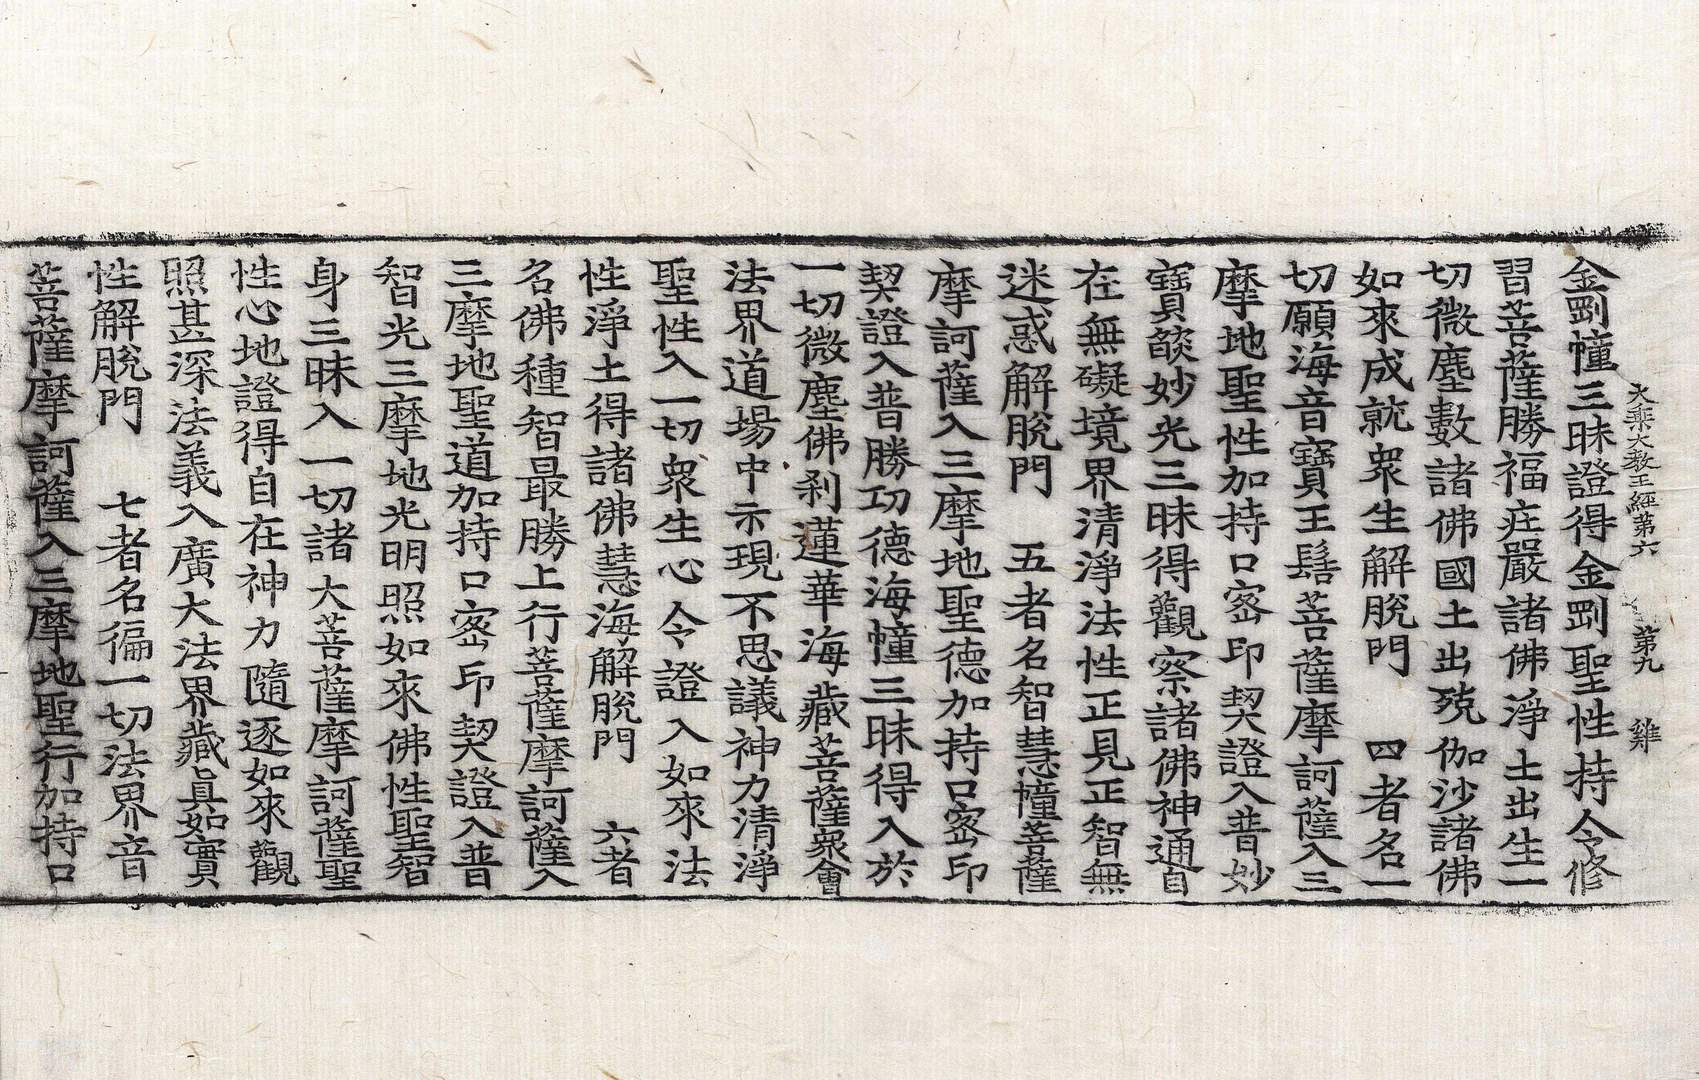 大乘大教王經第六 第九 雞
金剛幢三昧證得金剛聖性持令修
習菩薩勝福莊嚴諸佛淨土出生一
切微塵數諸佛國土出殑伽沙諸佛
如來成就衆生解脫門 四者名一
切願海音寶王髻菩薩摩訶薩入三
摩地聖性加持口密印契證入普妙
寶燄妙光三昧得觀察諸佛神通自
在無礙境界清淨法性正見正智無
迷惑解脫門 五者名智慧幢菩薩
摩訶薩入三摩地聖德加持口密印
契證入普勝功德海幢三昧得入於
一切微塵佛刹蓮華海藏菩薩衆會
法界道場中示現不思議神力清淨
聖性入一切衆生心令證入如來法
性淨土得諸佛慧海解脫門 六者
名佛種智最勝上行菩薩摩訶薩入
三摩地聖道加持口密印契證入普
智光三摩地光明照如來佛性聖智
身三昧入一切諸大菩薩摩訶薩聖
性心地證得自在神力隨逐如來觀
照甚深法義入廣大法界藏眞如實
性解脫門 七者名徧一切法界音
菩薩摩訶薩入三摩地聖行加持口